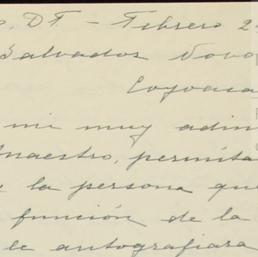 D.F. - Febrero 2
Salvador Novo
Coyoaca
mi muy admi
Maestro, permita
la persona que
función de la
le autografiara